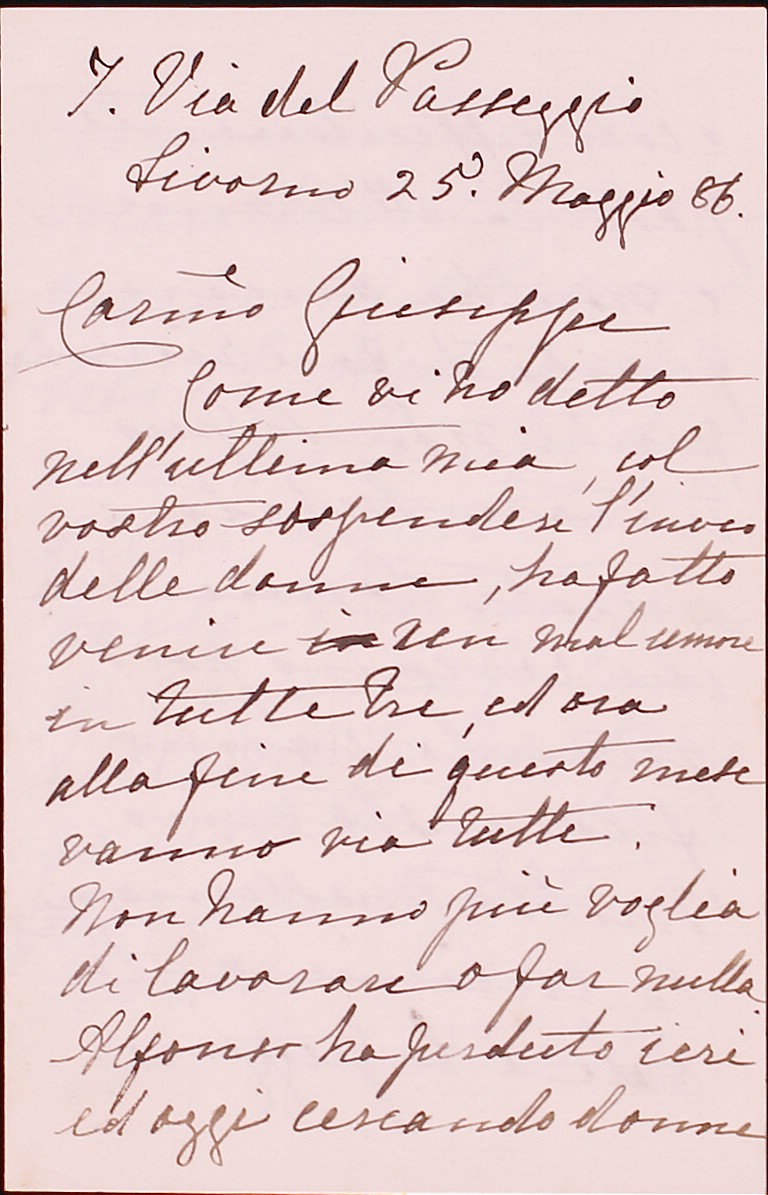 7. Via del Passeggio
Livorno 25. Maggio 86.
Carmo Giuseppe
Come vi ho detto
nell'ultima mia, col
vostro sospendere l'invio
delle donne, ha fatto
venire un mal umore
in tutte tre, ed ora
alla fine di questo mese
vanno via tutte.
Non hanno più voglia
di lavorare o far nulla
Alfonso ha perduto ieri
ed oggi cercando donne